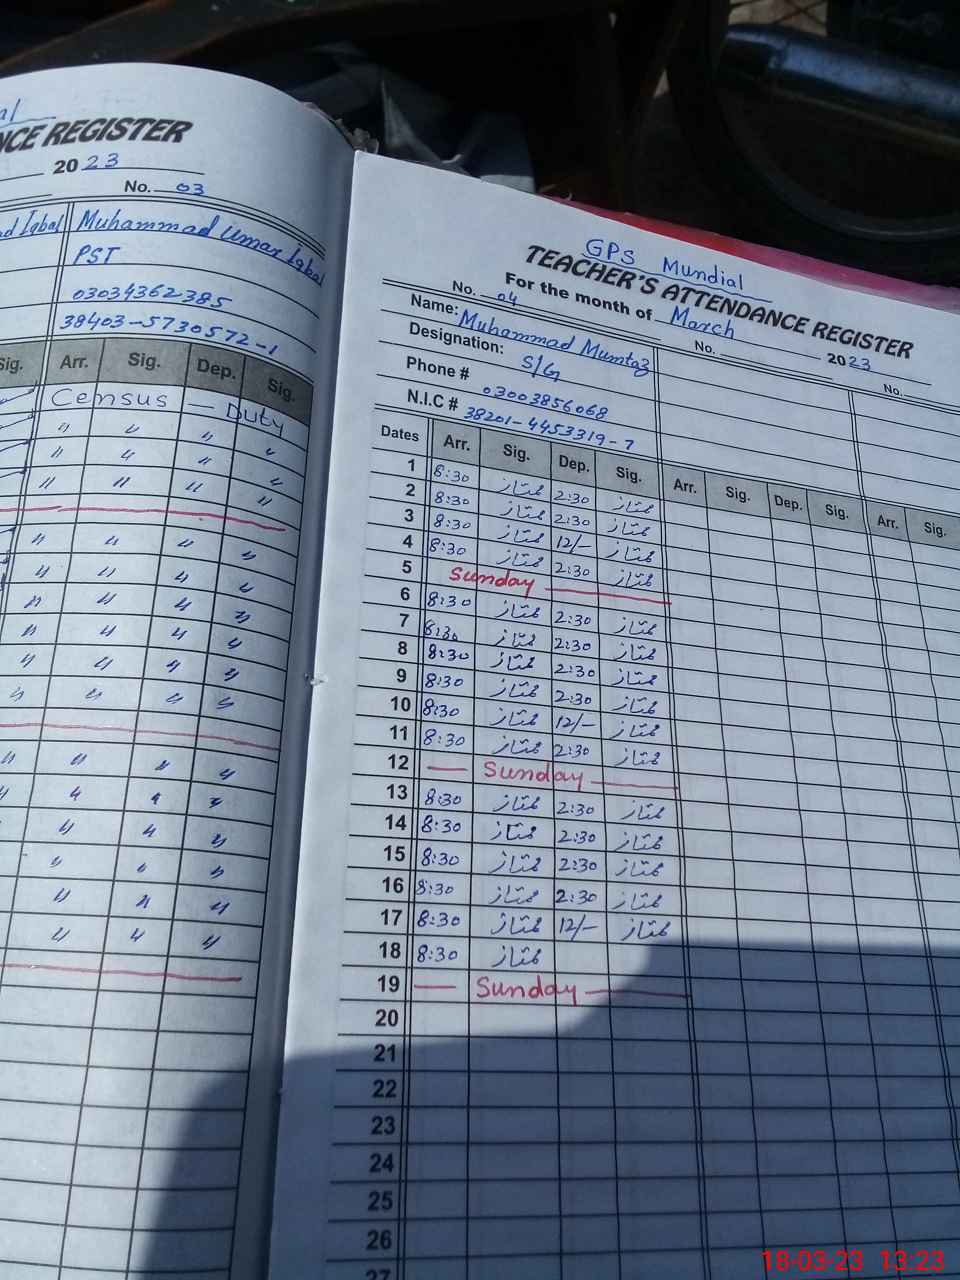 al
NCE REGISTER
2023
No. 03
ad Iqbal Muhammad Umar Iqbal
PST
03034362385
38403-5730572-1
Sig. Arr. Sig. Dep. Sig.
Census — Duty
〃 〃 〃 〃
〃 〃 〃 〃
〃 〃 〃 〃
〃 〃 〃 〃
〃 〃 〃 〃
〃 〃 〃 〃
〃 〃 〃 〃
〃 〃 〃 〃
〃 〃 〃 〃
〃 〃 〃 〃
〃 〃 〃 〃
〃 〃 〃
〃 〃 〃
〃 〃 〃 〃
〃 〃 〃
GPS Mundial
TEACHER'S ATTENDANCE REGISTER
For the month of March 2023
No. 04 No. No.
Name: Muhammad Mumtaz
Designation: S/G
Phone # 03003856068
N.I.C # 38201-4453319-7
Dates Arr. Sig. Dep. Sig. Arr. Sig. Dep. Sig. Arr. Sig.
1 8:30 ممتاز 2:30 ممتاز
2 8:30 ممتاز 2:30 ممتاز
3 8:30 ممتاز 12/- ممتاز
4 8:30 ممتاز 2:30 ممتاز
5 Sunday
6 8:30 ممتاز 2:30 ممتاز
7 8:30 ممتاز 2:30 ممتاز
8 8:30 ممتاز 2:30 ممتاز
9 8:30 ممتاز 2:30 ممتاز
10 8:30 ممتاز 12/- ممتاز
11 8:30 ممتاز 2:30 ممتاز
12 — Sunday —
13 8:30 ممتاز 2:30 ممتاز
14 8:30 ممتاز 2:30 ممتاز
15 8:30 ممتاز 2:30 ممتاز
16 8:30 ممتاز 2:30 ممتاز
17 8:30 ممتاز 12/- ممتاز
18 8:30 ممتاز
19 — Sunday —
20
21
22
23
24
25
26
27
18-03-23 13:23